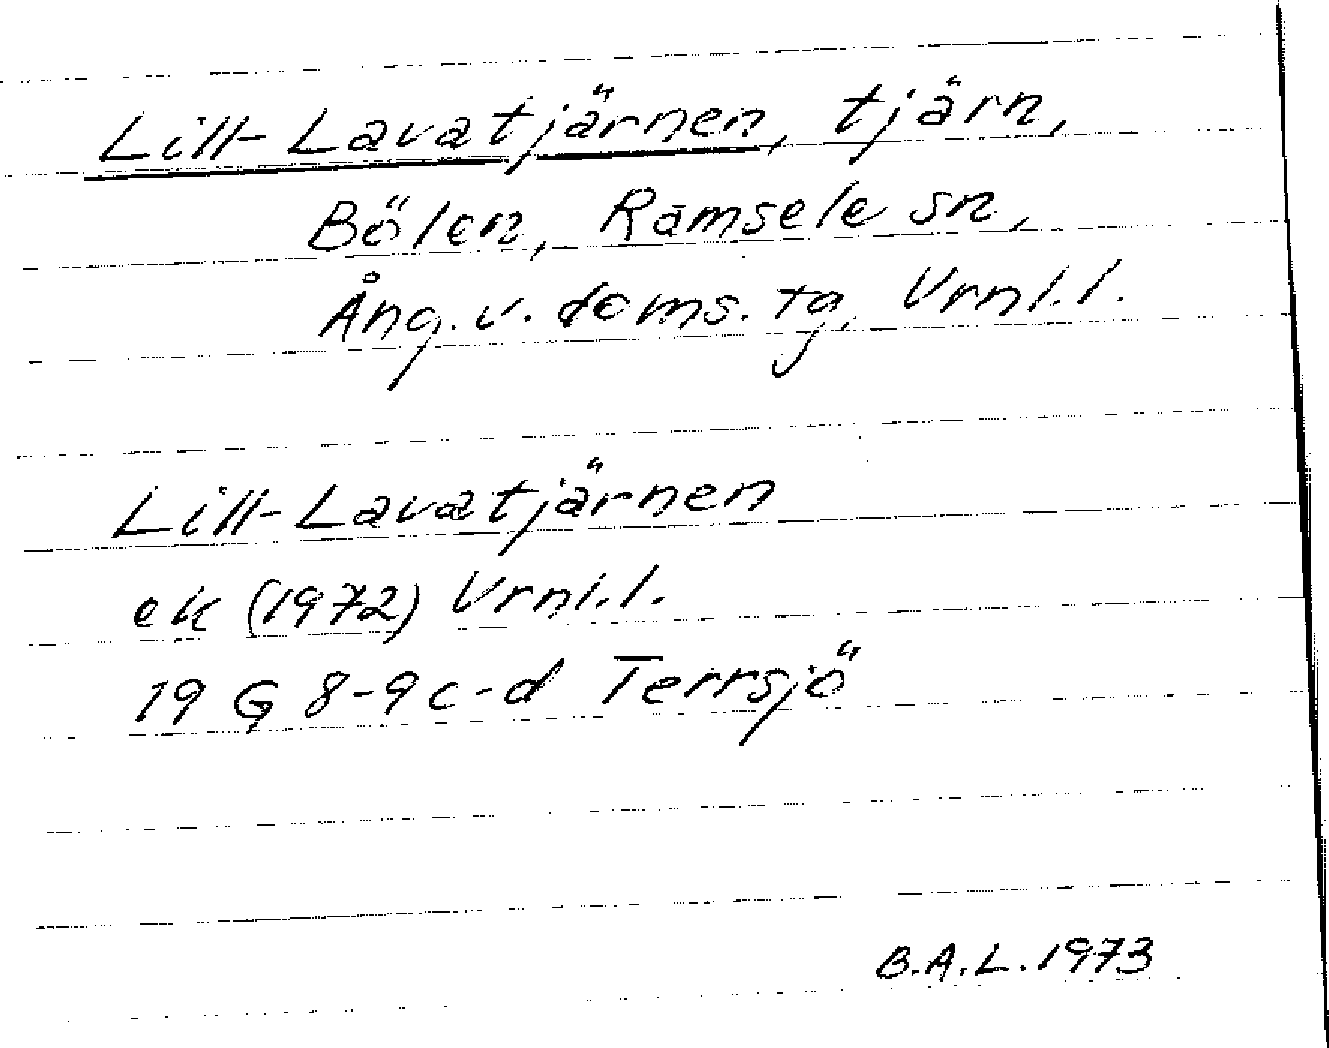 Lill-Lavatjärnen, tjärn,
Bölen, Ramsele sn,
Ång. v. doms. tg, Vrnl. l.
Lill-Lavatjärnen
ek (1972) Vrnl. l.
19 G 8-9 c-d Terrsjö
B.A.L. 1973